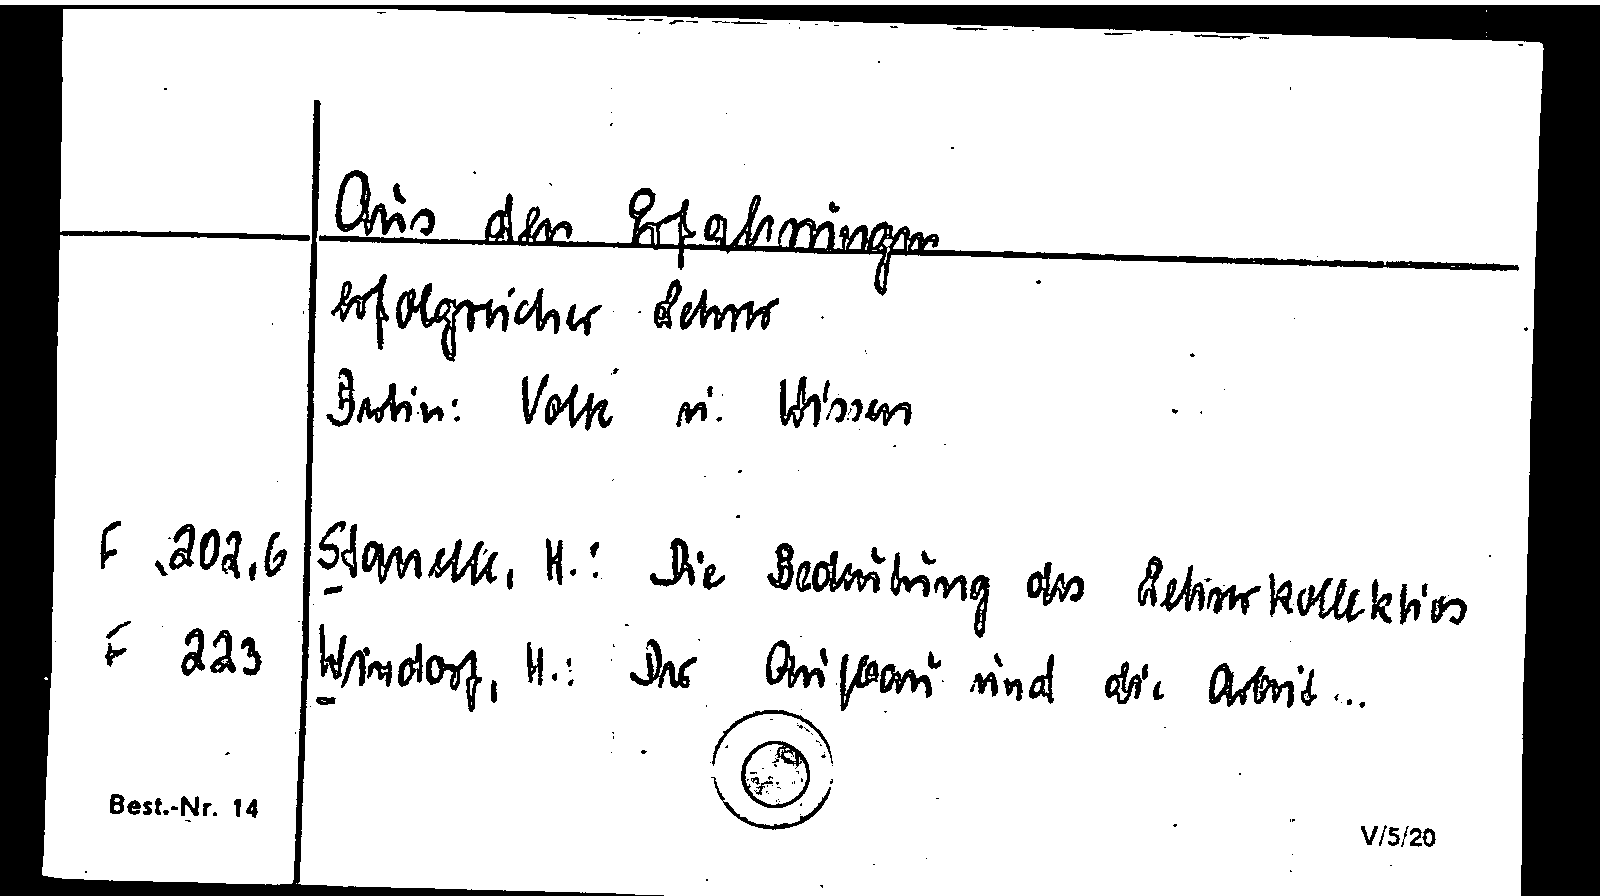 Aus den Erfahrungen
erfolgreicher Lehrer
Berlin: Volk u. Wissen
F 202,6 Stanelle, H.: Die Bedeutung des Lehrerkollektivs
F 223 Windorf, H.: Der Aufbau und die Arbeit...
Best.-Nr. 14
V/5/20